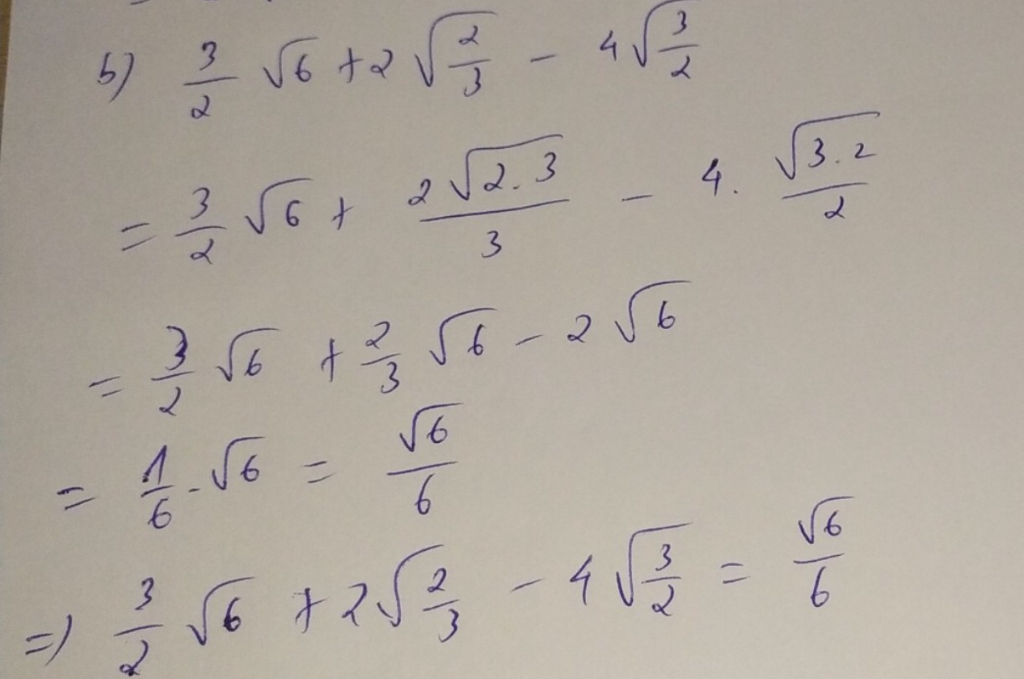 b) 3/2 √6 + 2 √(2/3) - 4 √(3/2)
= 3/2 √6 + (2 √(2.3))/3 - 4. (√(3.2))/2
= 3/2 √6 + 2/3 √6 - 2 √6
= 1/6 . √6 = √6/6
=) 3/2 √6 + 2 √(2/3) - 4 √(3/2) = √6/6